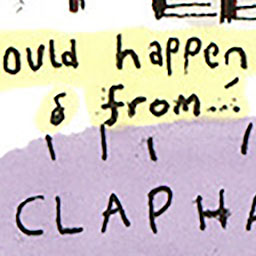 ould happen
& from...
CLAPHA